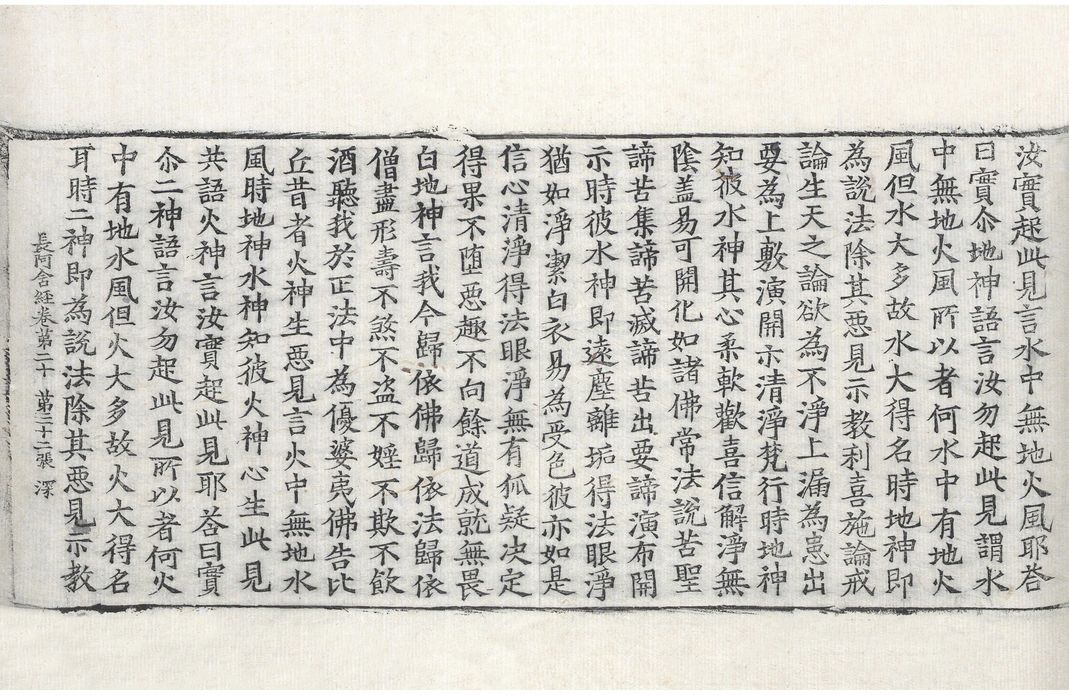 汝實起此見言水中無地火風耶荅
曰實尒地神語言汝勿起此見謂水
中無地火風所以者何水中有地火
風但水大多故水大得名時地神即
為說法除其惡見示教利喜施論戒
論生天之論欲為不淨上漏為患出
要為上敷演開示清淨梵行時地神
知彼水神其心柔軟歡喜信解淨無
陰盖易可開化如諸佛常法說苦聖
諦苦集諦苦滅諦苦出要諦演布開
示時彼水神即遠塵離垢得法眼淨
猶如淨潔白衣易為受色彼亦如是
信心清淨得法眼淨無有狐疑决定
得果不墮惡趣不向餘道成就無畏
白地神言我今歸依佛歸依法歸依
僧盡形壽不煞不盗不婬不欺不飲
酒聽我於正法中為優婆夷佛告比
丘昔者火神生惡見言火中無地水
風時地神水神知彼火神心生此見
共語火神言汝實起此見耶荅曰實
尒二神語言汝勿起此見所以者何火
中有地水風但火大多故火大得名
耳時二神即為說法除其惡見示教
長阿含経卷第二十 第三十二張 深